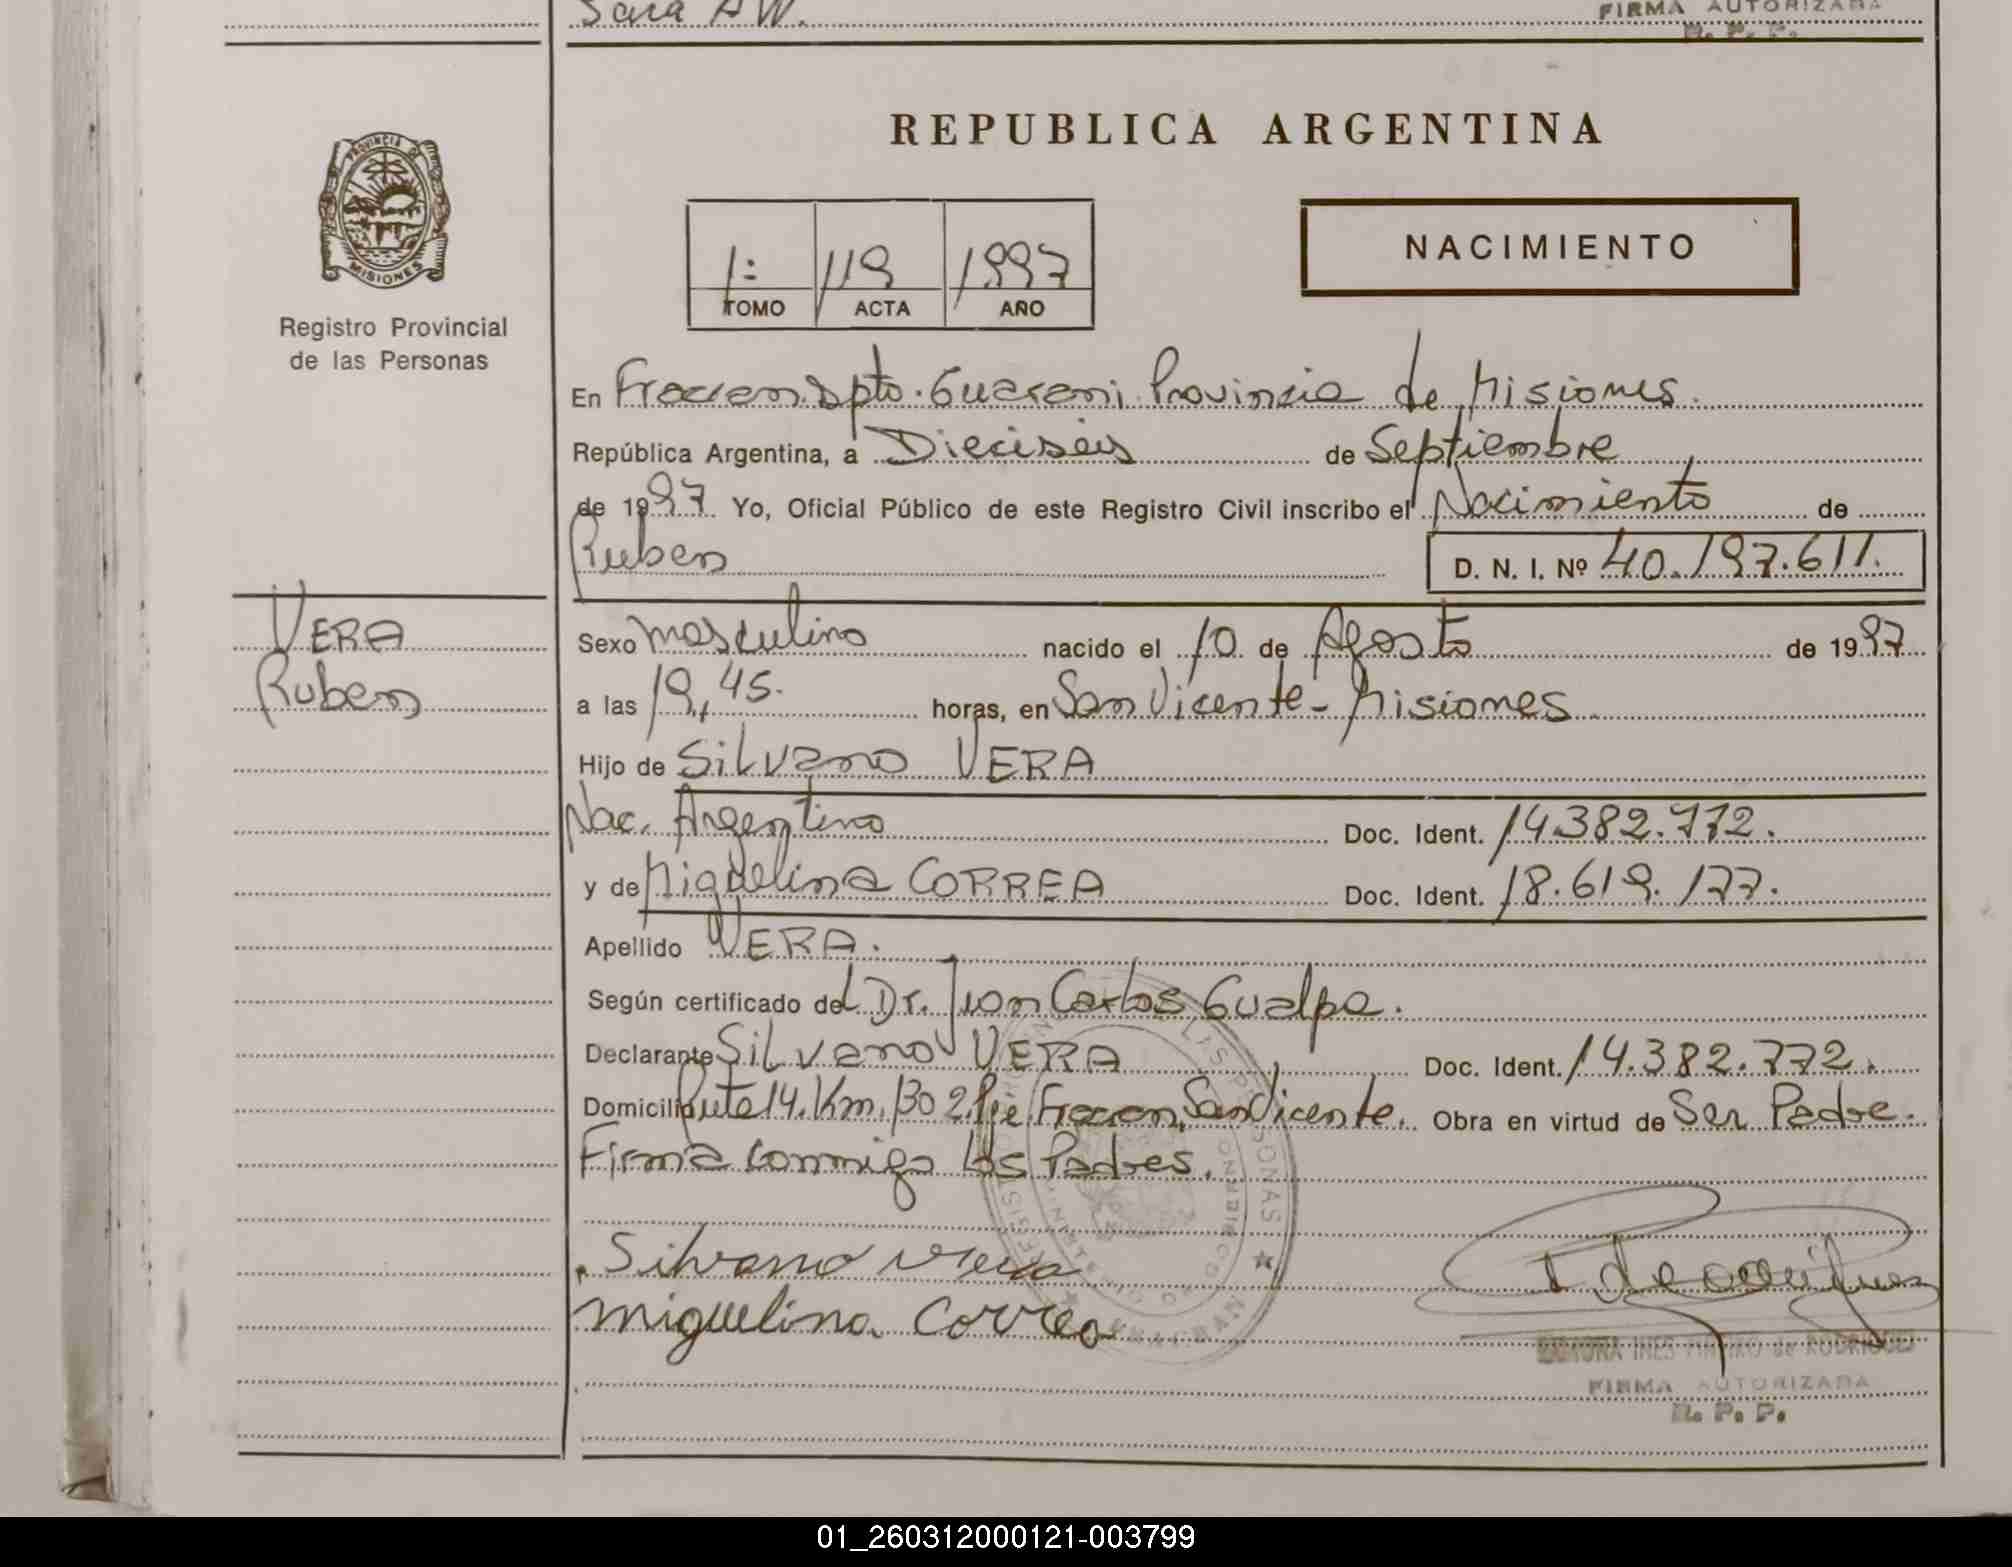 Sara AW.
FIRMA AUTORIZADA
R. P. P.
REPUBLICA ARGENTINA
PROVINCIA DE
MISIONES
Registro Provincial
de las Personas
1: 119 1997
TOMO ACTA AÑO
NACIMIENTO
En Fracran Dpto. Guarani Provincia de Misiones.
República Argentina, a Dieciséis de Septiembre
de 1997 Yo, Oficial Público de este Registro Civil inscribo el Nacimiento de
Ruben D. N. I. Nº 40.197.611.
VERA
Ruben
Sexo masculino nacido el 10 de Agosto de 1997
a las 19,45. horas, en San Vicente - Misiones
Hijo de Silvano VERA
Nac. Argentino Doc. Ident. 14.382.772.
y de Miguelina CORREA Doc. Ident. 18.619.177.
Apellido VERA.
Según certificado del Dr. Juan Carlos Gualpa.
Declarante Silvano VERA Doc. Ident. 14.382.772.
Domicilio Ruta 14. Km. 1302. Pje Fracran, San Vicente. Obra en virtud de Ser Padre.
Firma conmigo los Padres.
Silvano Vera
Miguelina Correa
FIRMA AUTORIZADA
R. P. P.
01_260312000121-003799